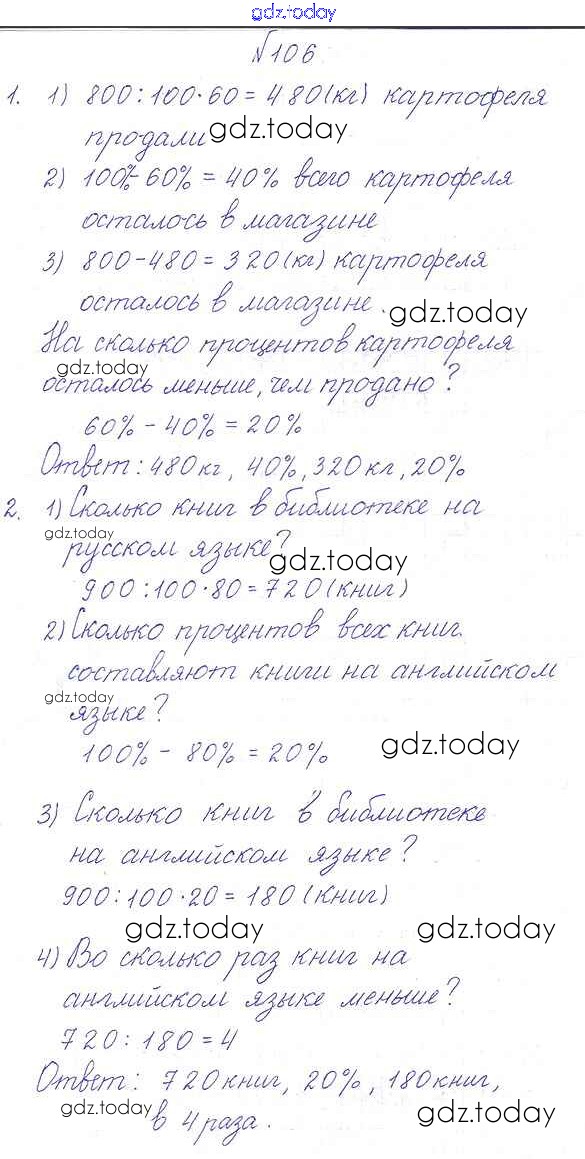 gdz.today
№106
1. 1) 800:100·60=480(кг) картофеля
продали gdz.today
2) 100%-60%=40% всего картофеля
осталось в магазине
3) 800-480=320(кг) картофеля
осталось в магазине. gdz.today
На сколько процентов картофеля
gdz.today
осталось меньше, чем продано?
60%-40%=20%
Ответ: 480кг, 40%, 320кг, 20%
2. 1) Сколько книг в библиотеке на
gdz.today
русском языке? gdz.today
900:100·80=720(книг)
2) Сколько процентов всех книг
составляют книги на английском
gdz.today
языке?
100%- 80%=20% gdz.today
3) Сколько книг в библиотеке
на английском языке?
900:100·20=180(книг)
gdz.today gdz.today
4) Во сколько раз книг на
английском языке меньше?
720:180=4
Ответ: 720книг, 20%, 180книг,
gdz.today gdz.today
в 4 раза.